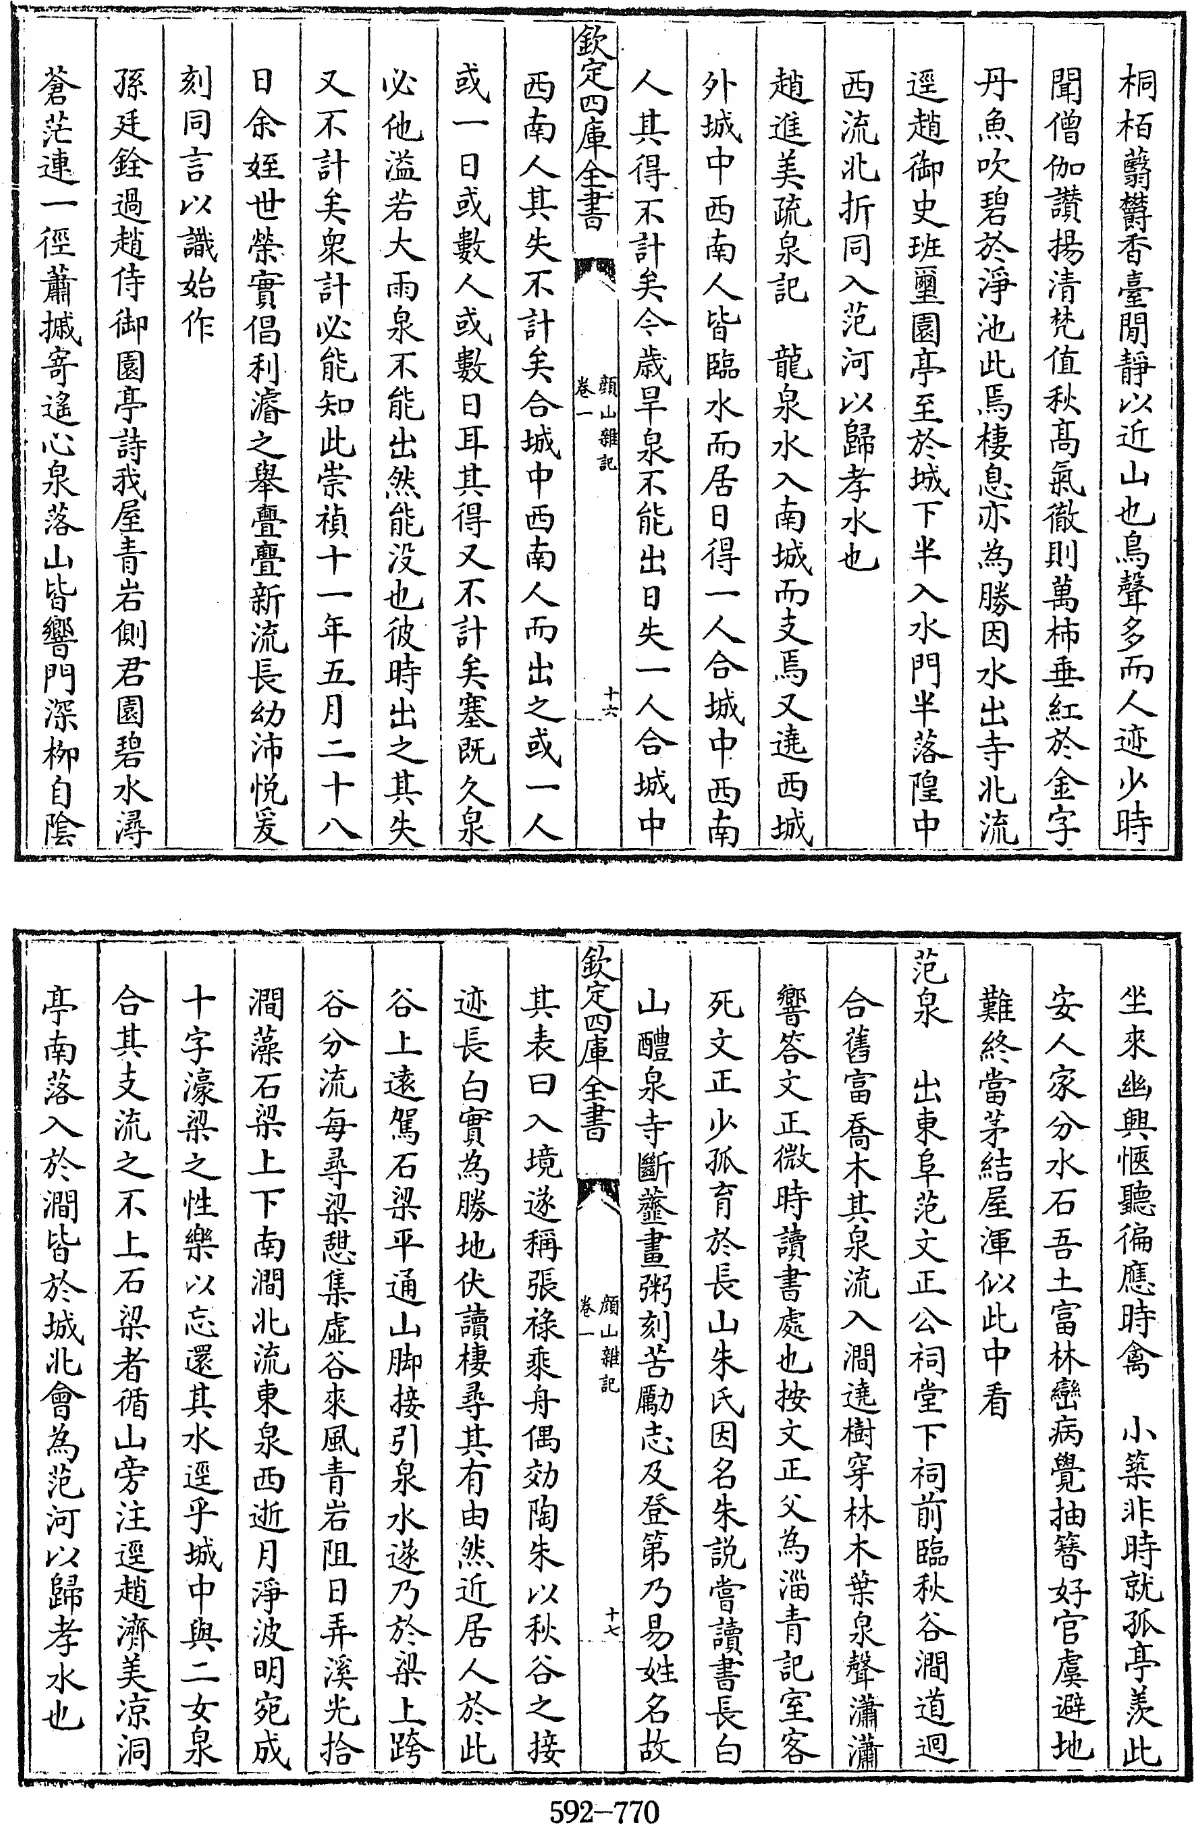 桐栢蓊欝香臺閒靜以近山也鳥聲多而人迹少時
聞僧伽讃揚清梵值秋髙氣徹則萬柿垂紅於金字
丹魚吹碧於淨池此焉棲息亦為勝因水出寺北流
逕趙御史班璽園亭至於城下半入水門半落隍中
西流北折同入范河以歸孝水也
趙進美疏泉記　龍泉水入南城而支焉又遶西城
外城中西南人皆臨水而居日得一人合城中西南
人其得不計矣今歲旱泉不能出日失一人合城中
欽定四庫全書
顔山雜記
卷一
十六
西南人其失不計矣合城中西南人而出之或一人
或一日或數人或數日耳其得又不計矣塞既久泉
必他溢若大雨泉不能出然能没也彼時出之其失
又不計矣衆計必能知此崇禎十一年五月二十八
日余姪世榮實倡利濬之舉亹亹新流長幼沛悅爰
刻同言以識始作
孫廷銓過趙侍御園亭詩我屋青岩側君園碧水潯
蒼茫連一徑蕭摵寄遙心泉落山皆響門深栁自陰
坐來幽興愜聽徧應時禽　小築非時就孤亭羨此
安人家分水石吾土富林巒病覺抽簪好官虞避地
難終當茅結屋渾似此中看
范泉　出東阜范文正公祠堂下祠前臨秋谷澗道迴
合舊富喬木其泉流入澗遶樹穿林木葉泉聲瀟瀟
響答文正微時讀書處也按文正父為淄青記室客
死文正少孤育於長山朱氏因名朱說嘗讀書長白
山醴泉寺斷虀畫粥刻苦勵志及登第乃易姓名故
欽定四庫全書
顔山雜記
卷一
十七
其表曰入境遂稱張祿乘舟偶効陶朱以秋谷之接
迹長白實為勝地伏讀棲尋其有由然近居人於此
谷上遠駕石梁平通山脚接引泉水遂乃於梁上跨
谷分流每尋梁憇集虛谷來風青岩阻日弄溪光拾
澗藻石梁上下南澗北流東泉西逝月淨波明宛成
十字濠梁之性樂以忘還其水逕乎城中與二女泉
合其支流之不上石梁者循山旁注逕趙濟美凉洞
亭南落入於澗皆於城北會為范河以歸孝水也
592-770